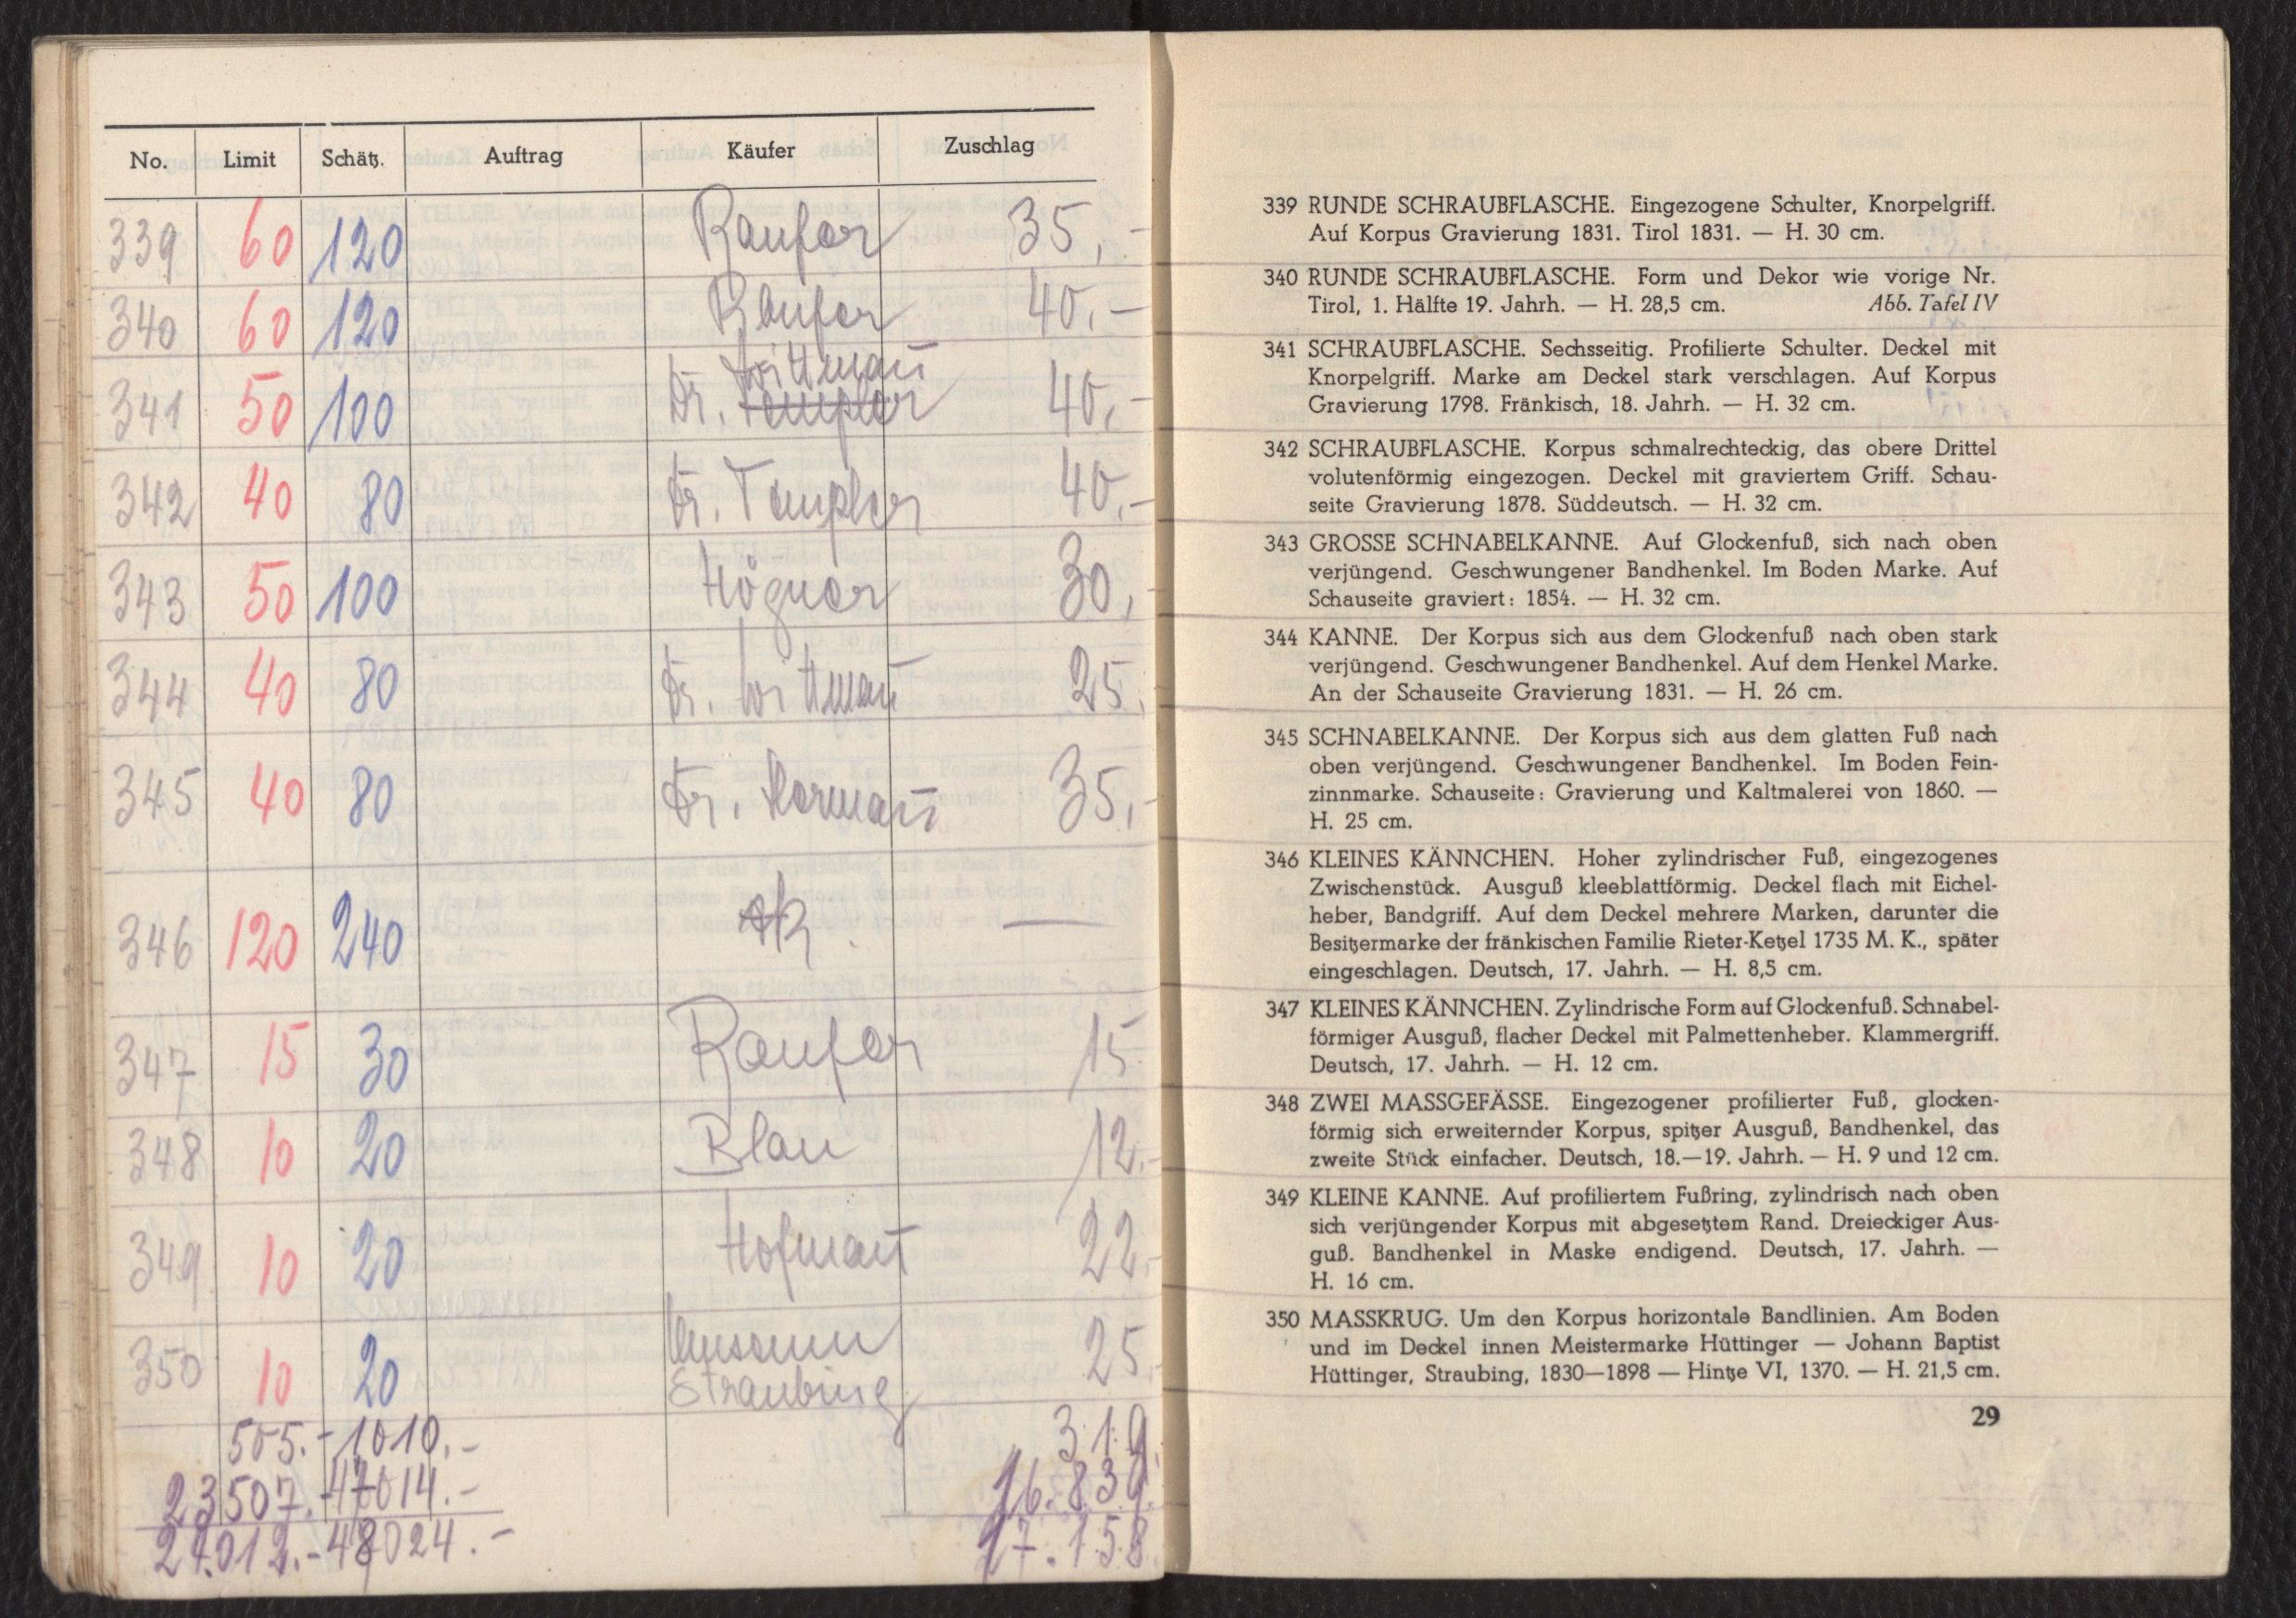 No. Limit Schätz. Auftrag Käufer Zuschlag
339 60 120 Raufer 35,-
340 60 120 Raufer 40,-
Wittmann
341 50 100 Dr. Templer 40,-
342 40 80 Dr. Templer 40,-
343 50 100 Högner 30,-
344 40 80 Dr. Wittmann 25,
345 40 80 Dr. Hermann 35,-
346 120 240 —
347 15 30 Raufer 15
348 10 20 Blau 12.-
349 10 20 Hofmann 22.-
350 10 20 25,
Straubing
505.- 1010.- 319.
23507.- 47014.- 16.839.
24.012.- 48024.- 17.158.
339 RUNDE SCHRAUBFLASCHE. Eingezogene Schulter, Knorpelgriff.
Auf Korpus Gravierung 1831. Tirol 1831. — H. 30 cm.
340 RUNDE SCHRAUBFLASCHE. Form und Dekor wie vorige Nr.
Tirol, 1. Hälfte 19. Jahrh. — H. 28,5 cm. Abb. Tafel IV
341 SCHRAUBFLASCHE. Sechsseitig. Profilierte Schulter. Deckel mit
Knorpelgriff. Marke am Deckel stark verschlagen. Auf Korpus
Gravierung 1798. Fränkisch, 18. Jahrh. — H. 32 cm.
342 SCHRAUBFLASCHE. Korpus schmalrechteckig, das obere Drittel
volutenförmig eingezogen. Deckel mit graviertem Griff. Schau-
seite Gravierung 1878. Süddeutsch. — H. 32 cm.
343 GROSSE SCHNABELKANNE. Auf Glockenfuß, sich nach oben
verjüngend. Geschwungener Bandhenkel. Im Boden Marke. Auf
Schauseite graviert: 1854. — H. 32 cm.
344 KANNE. Der Korpus sich aus dem Glockenfuß nach oben stark
verjüngend. Geschwungener Bandhenkel. Auf dem Henkel Marke.
An der Schauseite Gravierung 1831. — H. 26 cm.
345 SCHNABELKANNE. Der Korpus sich aus dem glatten Fuß nach
oben verjüngend. Geschwungener Bandhenkel. Im Boden Fein-
zinnmarke. Schauseite: Gravierung und Kaltmalerei von 1860. —
H. 25 cm.
346 KLEINES KÄNNCHEN. Hoher zylindrischer Fuß, eingezogenes
Zwischenstück. Ausguß kleeblattförmig. Deckel flach mit Eichel-
heber, Bandgriff. Auf dem Deckel mehrere Marken, darunter die
Besitzermarke der fränkischen Familie Rieter-Ketzel 1735 M. K., später
eingeschlagen. Deutsch, 17. Jahrh. — H. 8,5 cm.
347 KLEINES KÄNNCHEN. Zylindrische Form auf Glockenfuß. Schnabel-
förmiger Ausguß, flacher Deckel mit Palmettenheber. Klammergriff.
Deutsch, 17. Jahrh. — H. 12 cm.
348 ZWEI MASSGEFÄSSE. Eingezogener profilierter Fuß, glocken-
förmig sich erweiternder Korpus, spitzer Ausguß, Bandhenkel, das
zweite Stück einfacher. Deutsch, 18.—19. Jahrh. — H. 9 und 12 cm.
349 KLEINE KANNE. Auf profiliertem Fußring, zylindrisch nach oben
sich verjüngender Korpus mit abgesetztem Rand. Dreieckiger Aus-
guß. Bandhenkel in Maske endigend. Deutsch, 17. Jahrh. —
H. 16 cm.
350 MASSKRUG. Um den Korpus horizontale Bandlinien. Am Boden
und im Deckel innen Meistermarke Hüttinger — Johann Baptist
Hüttinger, Straubing, 1830—1898 — Hintze VI, 1370. — H. 21,5 cm.
29